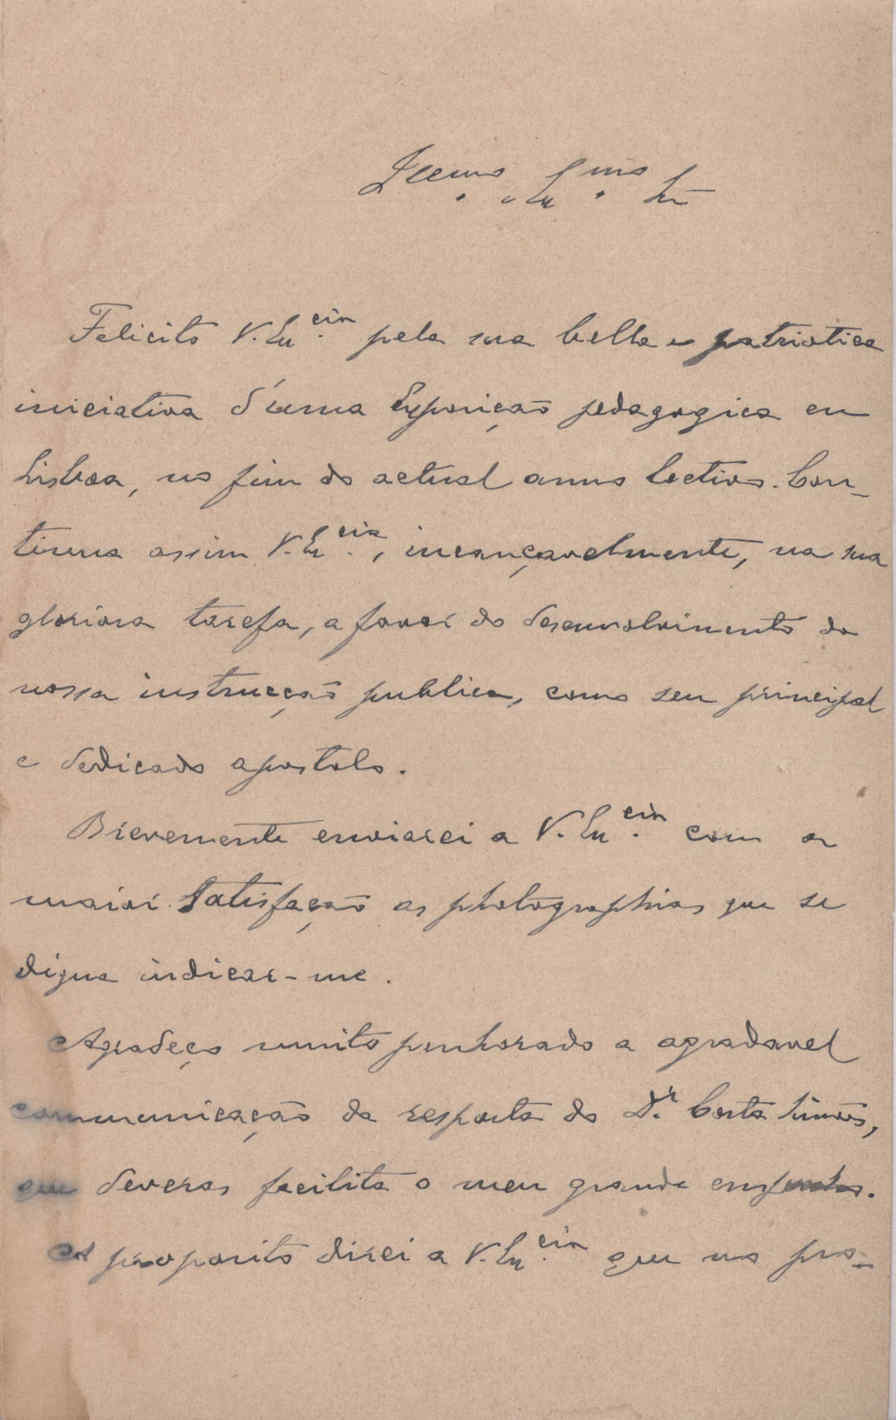 Illmo. Exmo. Sr.
Felicito V. Excia. pela sua bella e patriotica
iniciativa d'uma Exposição pedagogica em
Lisboa, no fim do actual anno lectivo. Con-
tinua assim V. Excia., incançavelmente, na sua
gloriosa tarefa, a favor do desenvolvimento da
nossa instrucção publica, como seu principal
e dedicado apostolo.
Brevemente enviarei a V. Excia. com a
maior satisfação as photographias que se
digna indicar-me.
Agradeço muito penhorado a agradavel
communicação da resposta do Dr. Costa Simões,
que deveras facilita o meu grande
A proposito direi a V. Excia. que no pro-